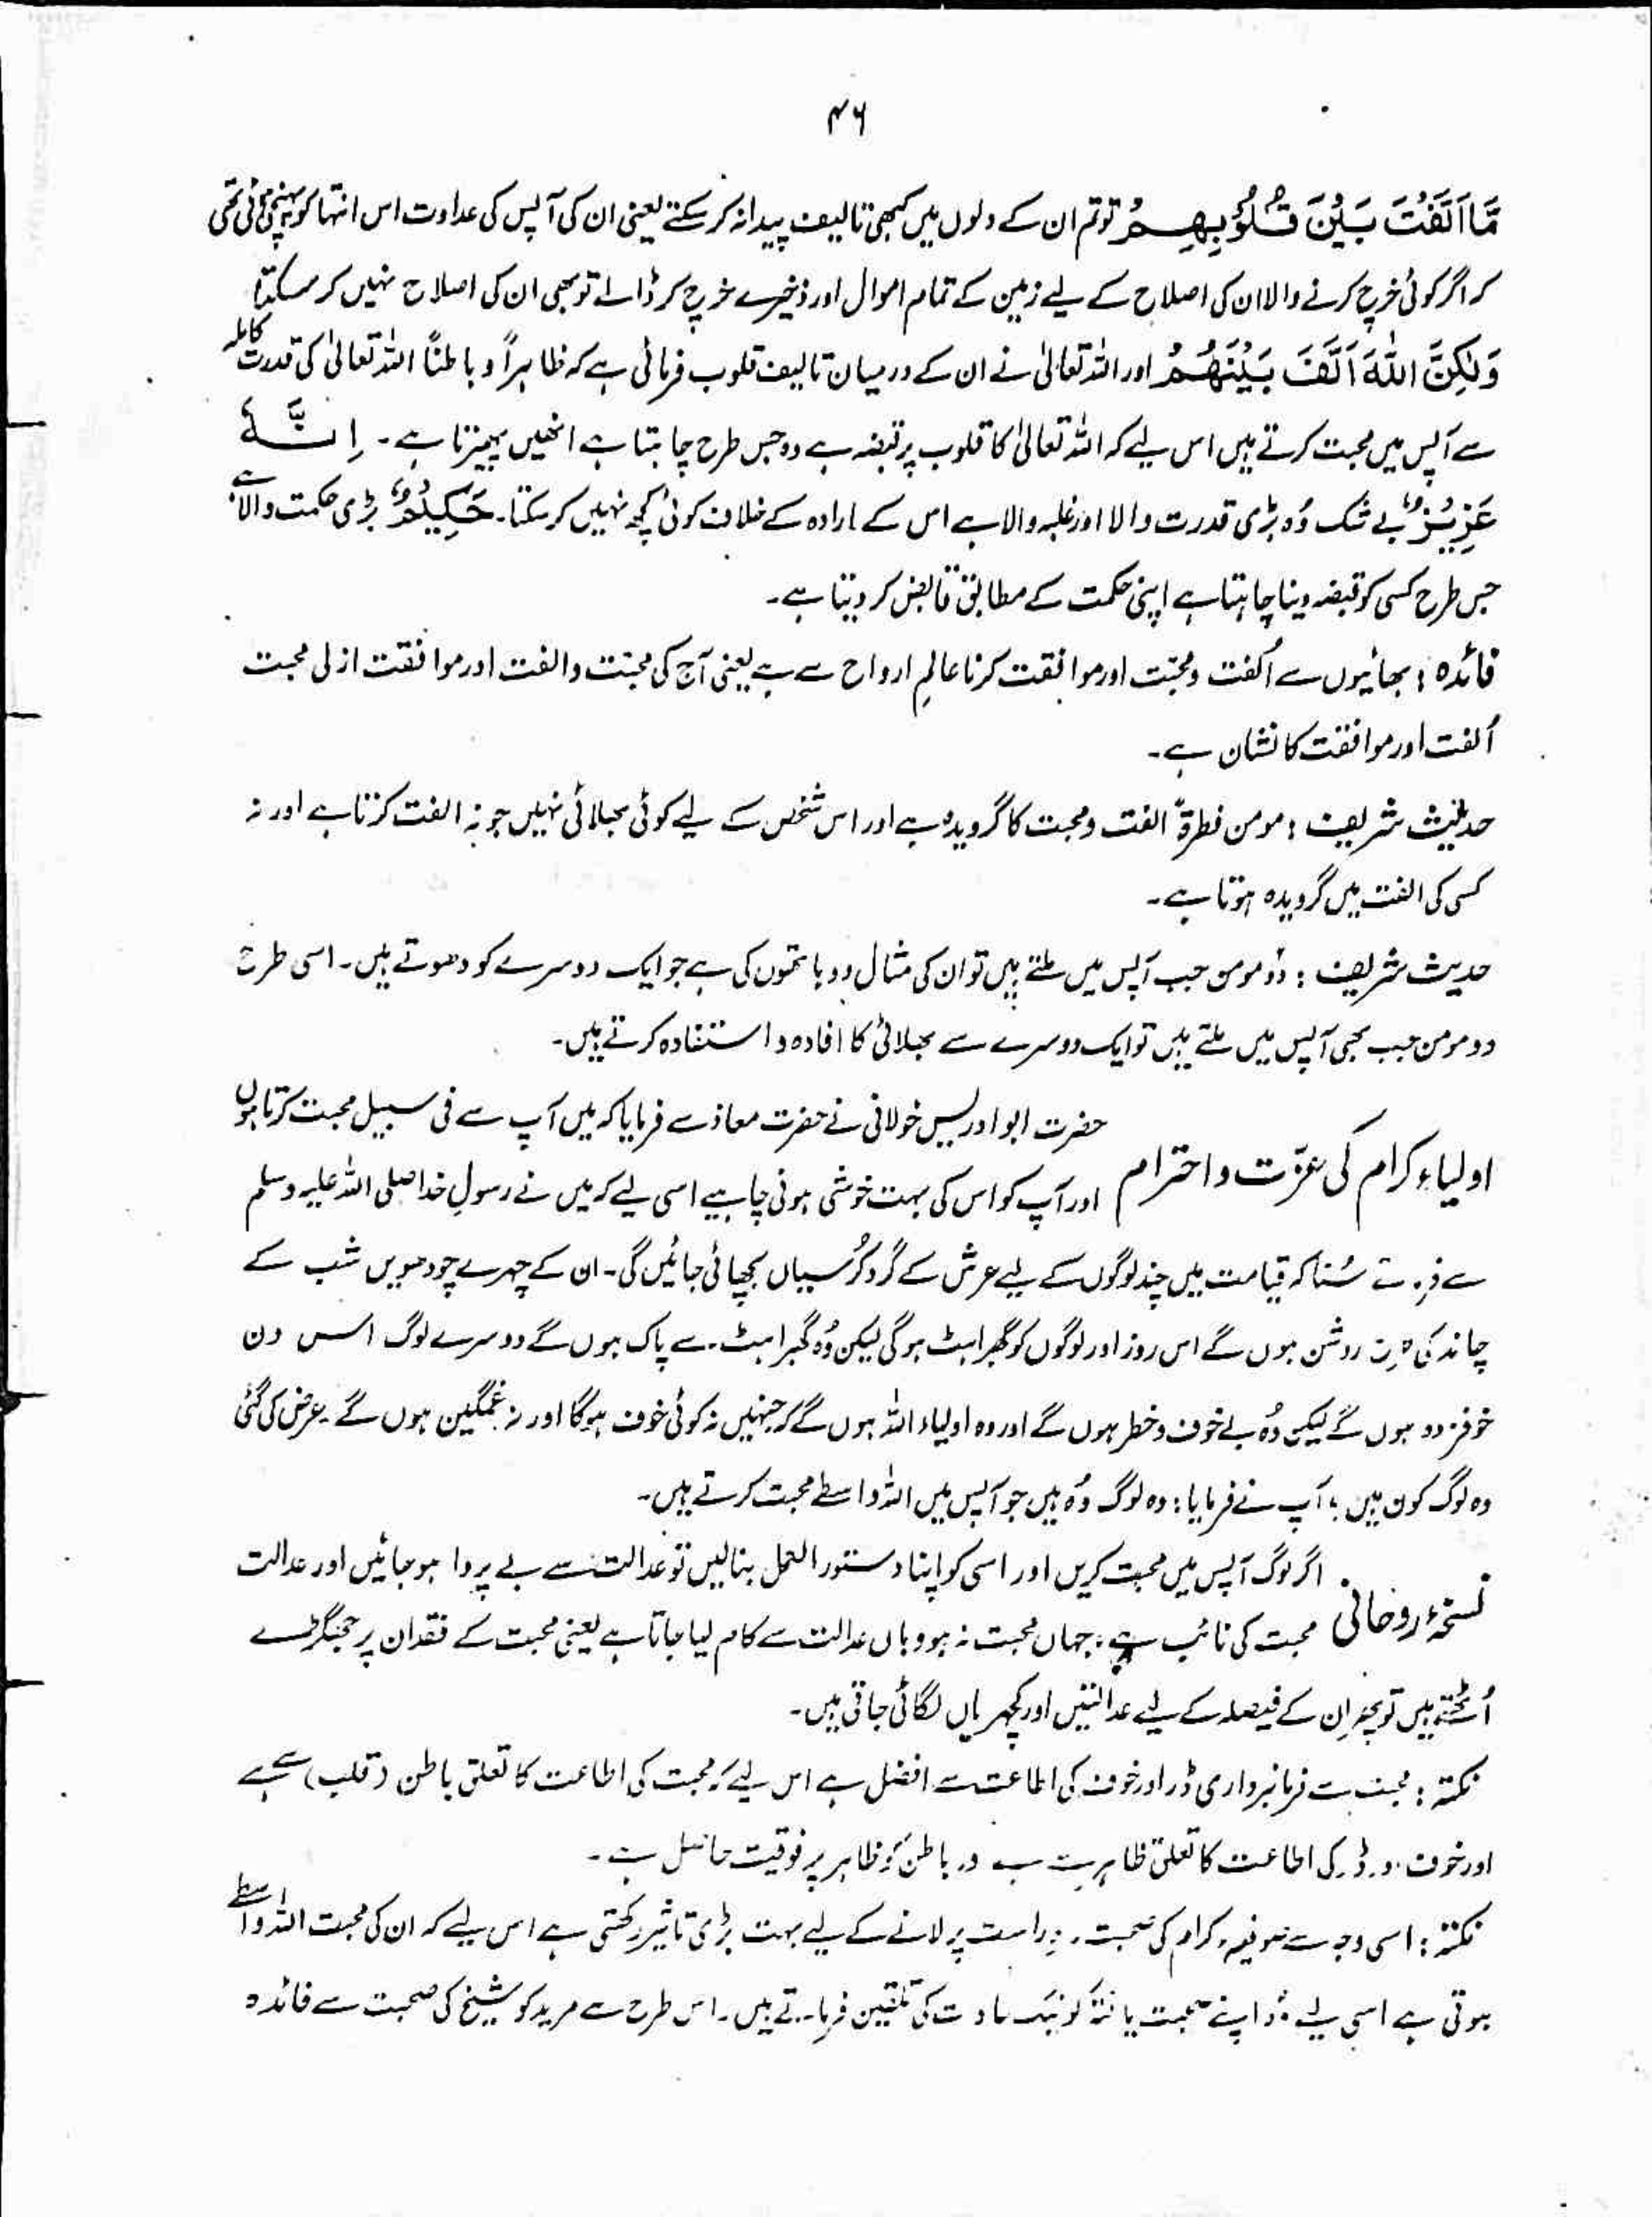 ۴۶
مَّا اَلَّفْتَ بَيْنَ قُلُوْبِهِمْ تو تم ان کے دلوں میں کبھی تالیف پیدا نہ کر سکتے یعنی ان کی آپس کی عداوت اس انتہا کو پہنچی ہوئی تھی
کہ اگر کوئی خرچ کرنے والا ان کی اصلاح کے لیے زمین کے تمام اموال اور ذخیرے خرچ کر ڈالے تو بھی ان کی اصلاح نہیں کر سکتا
وَلٰكِنَّ اللّٰهَ اَلَّفَ بَيْنَهُمْ اور اللہ تعالیٰ نے ان کے درمیان تالیف قلوب فرمائی ہے کہ ظاہراً و باطناً اللہ تعالیٰ کی قدرت کاملہ
سے آپس میں محبت کرتے ہیں اس لیے کہ اللہ تعالیٰ کا قلوب پر قبضہ ہے وہ جس طرح چاہتا ہے انھیں پھیرتا ہے۔ اِنَّهٗ
عَزِيْزٌ بے شک وُہ بڑی قدرت والا اور غلبہ والا ہے اس کے ارادہ کے خلاف کوئی کچھ نہیں کر سکتا۔ حَكِيْمٌ بڑی حکمت والا ہے
جس طرح کسی کو قبضہ دینا چاہتا ہے اپنی حکمت کے مطابق قابض کر دیتا ہے۔
فائدہ : بھائیوں سے اُلفت و محبّت اور موافقت کرنا عالمِ ارواح سے ہے یعنی آج کی محبّت و الفت اور موافقت ازلی محبت
اُلفت اور موافقت کا نشان ہے۔
حدیث شریف : مومن فطرۃً الفت و محبت کا گرویدہ ہے اور اس شخص کے لیے کوئی بھلائی نہیں جو نہ الفت کرتا ہے اور نہ
کسی کی الفت میں گرویدہ ہوتا ہے۔
حدیث شریف : دُو مومن جب آپس میں ملتے ہیں تو ان کی مثال دو ہاتھوں کی ہے جو ایک دوسرے کو دھوتے ہیں۔ اسی طرح
دو مومن جب بھی آپس میں ملتے ہیں تو ایک دوسرے سے بھلائی کا افادہ و استفادہ کرتے ہیں۔
اولیاءِ کرام کی عزّت و احترام
حضرت ابو ادریس خولانی نے حضرت معاذ سے فرمایا کہ میں آپ سے فی سبیل محبت کرتا ہوں
اور آپ کو اس کی بہت خوشی ہونی چاہیے اسی لیے کہ میں نے رسولِ خدا صلی اللہ علیہ وسلم
سے سُنا کہ قیامت میں چند لوگوں کے لیے عرش کے گرد کُرسیاں بچھائی جائیں گی۔ ان کے چہرے چودھویں شب کے
چاند کی روشن ہوں گے اس روز اور لوگوں کو گھبراہٹ ہو گی لیکن وُہ گھبراہٹ سے پاک ہوں گے دوسرے لوگ اس دن
خوفزدہ ہوں گے لیکن وُہ بے خوف و خطر ہوں گے اور وہ اولیاء اللہ ہوں گے کہ جنہیں نہ کوئی خوف ہوگا اور نہ غمگین ہوں گے۔ عرض کی گئی
وہ لوگ کون ہیں ؟ آپ نے فرمایا : وہ لوگ وُہ ہیں جو آپس میں اللہ واسطے محبت کرتے ہیں۔
نسخۂ روحانی
اگر لوگ آپس میں محبت کریں اور اسی کو اپنا دستور العمل بنا لیں تو عدالت سے بے پروا ہو جائیں اور عدالت
محبت کی نائب ہے ، جہاں محبت نہ ہو وہاں عدالت سے کام لیا جاتا ہے یعنی محبت کے فقدان پر جھگڑے
اُٹھتے ہیں تو پھر ان کے فیصلہ کے لیے عدالتیں اور کچہریاں لگائی جاتی ہیں۔
نکتہ : محبت سے فرمانبرداری ڈر اور خوف کی اطاعت سے افضل ہے اس لیے کہ محبت کی اطاعت کا تعلق باطن (قلب) سے ہے
اور خوف و ڈر کی اطاعت کا تعلق ظاہر سے ہے اور باطن کو ظاہر پر فوقیت حاصل ہے۔
نکتہ : اسی وجہ سے صوفیہ کرام کی صحبت راہِ راست پر لانے کے لیے بہت بڑی تاثیر رکھتی ہے اس لیے کہ ان کی محبت اللہ واسطے
ہوتی ہے اسی لیے وُہ اپنے صحبت یافتہ کو نیک عادت کی تلقین فرماتے ہیں۔ اس طرح سے مرید کو شیخ کی صحبت سے فائدہ